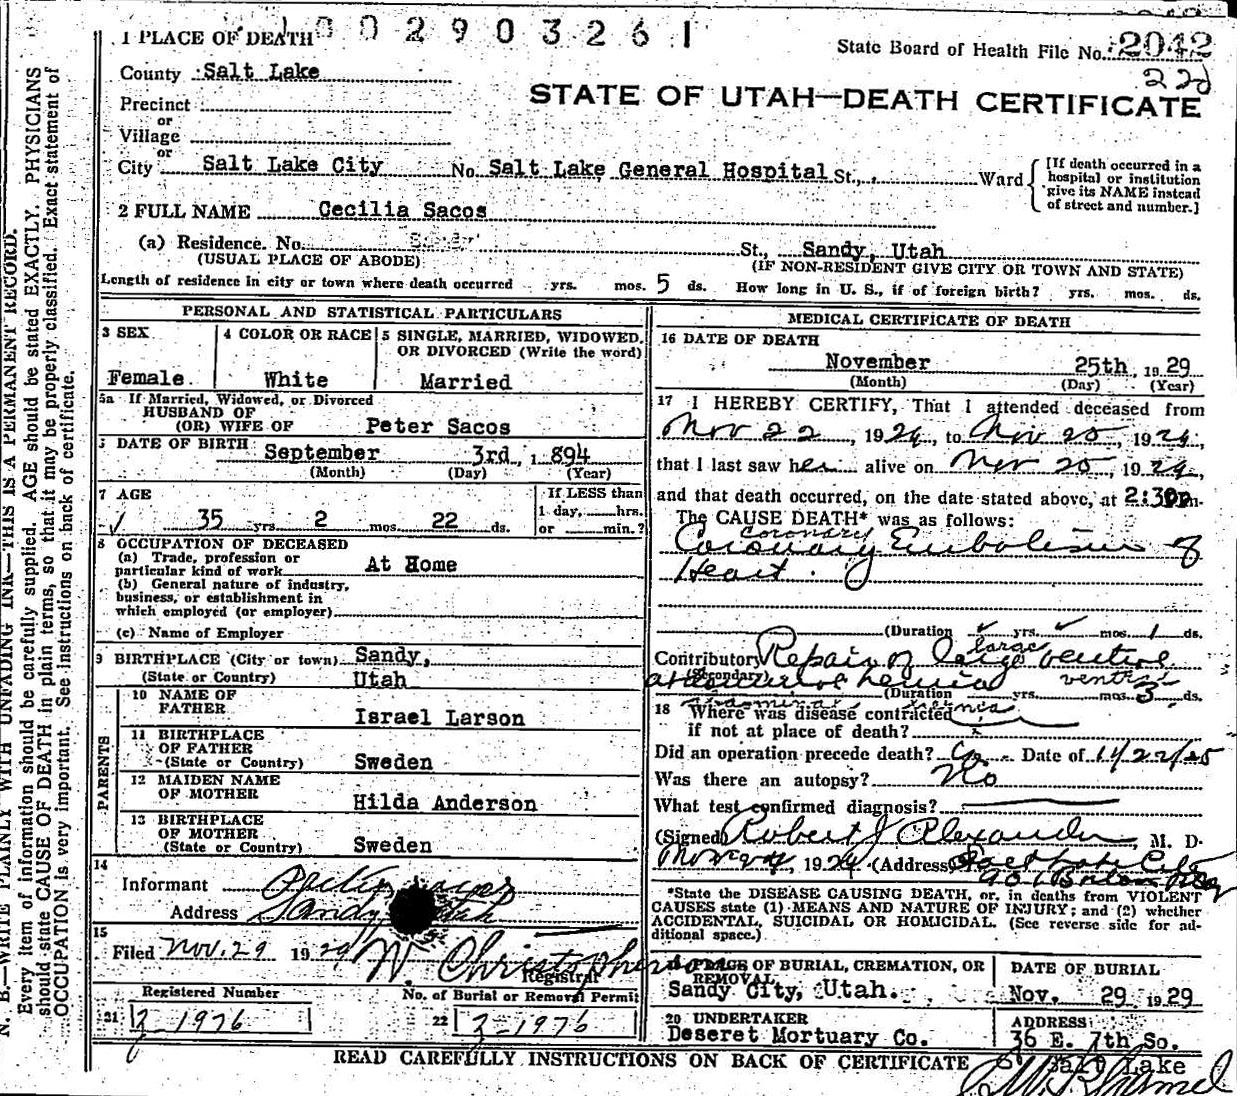 1 0 0 2 9 0 3 2 6 1
1 PLACE OF DEATH
State Board of Health File No. 2042
22d
County Salt Lake
STATE OF UTAH—DEATH CERTIFICATE
Precinct
or
Village
or
City Salt Lake City No. Salt Lake General Hospital St., Ward
[If death occurred in a
hospital or institution
give its NAME instead
of street and number.]
2 FULL NAME Cecilia Sacos
(a) Residence. No. Sandy St., Sandy, Utah
(USUAL PLACE OF ABODE) (IF NON-RESIDENT GIVE CITY OR TOWN AND STATE)
Length of residence in city or town where death occurred yrs. mos. 5 ds. How long in U. S., if of foreign birth? yrs. mos. ds.
PERSONAL AND STATISTICAL PARTICULARS
3 SEX
Female
4 COLOR OR RACE
White
5 SINGLE, MARRIED, WIDOWED,
OR DIVORCED (Write the word)
Married
5a If Married, Widowed, or Divorced
HUSBAND OF
(OR) WIFE OF Peter Sacos
DATE OF BIRTH September 3rd, 1894
(Month) (Day) (Year)
7 AGE
35 yrs. 2 mos. 22 ds.
If LESS than
1 day, hrs.
or min.?
8 OCCUPATION OF DECEASED
(a) Trade, profession or
particular kind of work At Home
(b) General nature of industry,
business, or establishment in
which employed (or employer)
(c) Name of Employer
9 BIRTHPLACE (City or town) Sandy,
(State or Country) Utah
PARENTS
10 NAME OF
FATHER Israel Larson
11 BIRTHPLACE
OF FATHER
(State or Country) Sweden
12 MAIDEN NAME
OF MOTHER Hilda Anderson
13 BIRTHPLACE
OF MOTHER
(State or Country) Sweden
14
Informant Peter Sacos
Address Sandy Utah
15
Filed Nov. 29 1929 W. Christopherson
Registrar
Registered Number
21 2-1976
No. of Burial or Removal Permit
22 2-1976
MEDICAL CERTIFICATE OF DEATH
16 DATE OF DEATH
November 25th, 1929
(Month) (Day) (Year)
17 I HEREBY CERTIFY, That I attended deceased from
Nov 22, 1929, to Nov 25, 1929,
that I last saw her alive on Nov 25, 1929,
and that death occurred, on the date stated above, at 2:30pm.
The CAUSE DEATH* was as follows:
coronary
Coronary Embolism of
Heart.
(Duration yrs. mos. 1 ds.
large
Contributory Repair of large ventral
(Secondary) abdominal hernia ventral
(Duration yrs. mos. 3 ds.
abdominal hernia
18 Where was disease contracted
if not at place of death?
Did an operation precede death? Yes Date of 11/22/25
Was there an autopsy? No
What test confirmed diagnosis?
(Signed) Robert J Alexander, M. D.
1929 (Address) Salt Lake City
901 Boston Bldg
*State the DISEASE CAUSING DEATH, or, in deaths from VIOLENT
CAUSES state (1) MEANS AND NATURE OF INJURY; and (2) whether
ACCIDENTAL, SUICIDAL OR HOMICIDAL. (See reverse side for ad-
ditional space.)
PLACE OF BURIAL, CREMATION, OR
REMOVAL
Sandy City, Utah.
DATE OF BURIAL
Nov. 29 1929
20 UNDERTAKER
Deseret Mortuary Co.
ADDRESS
36 E. 7th So.
Salt Lake
READ CAREFULLY INSTRUCTIONS ON BACK OF CERTIFICATE
N. B.—WRITE PLAINLY WITH UNFADING INK—THIS IS A PERMANENT RECORD.
Every item of information should be carefully supplied. AGE should be stated EXACTLY. PHYSICIANS
should state CAUSE OF DEATH in plain terms, so that it may be properly classified. Exact statement of
OCCUPATION is very important. See instructions on back of certificate.